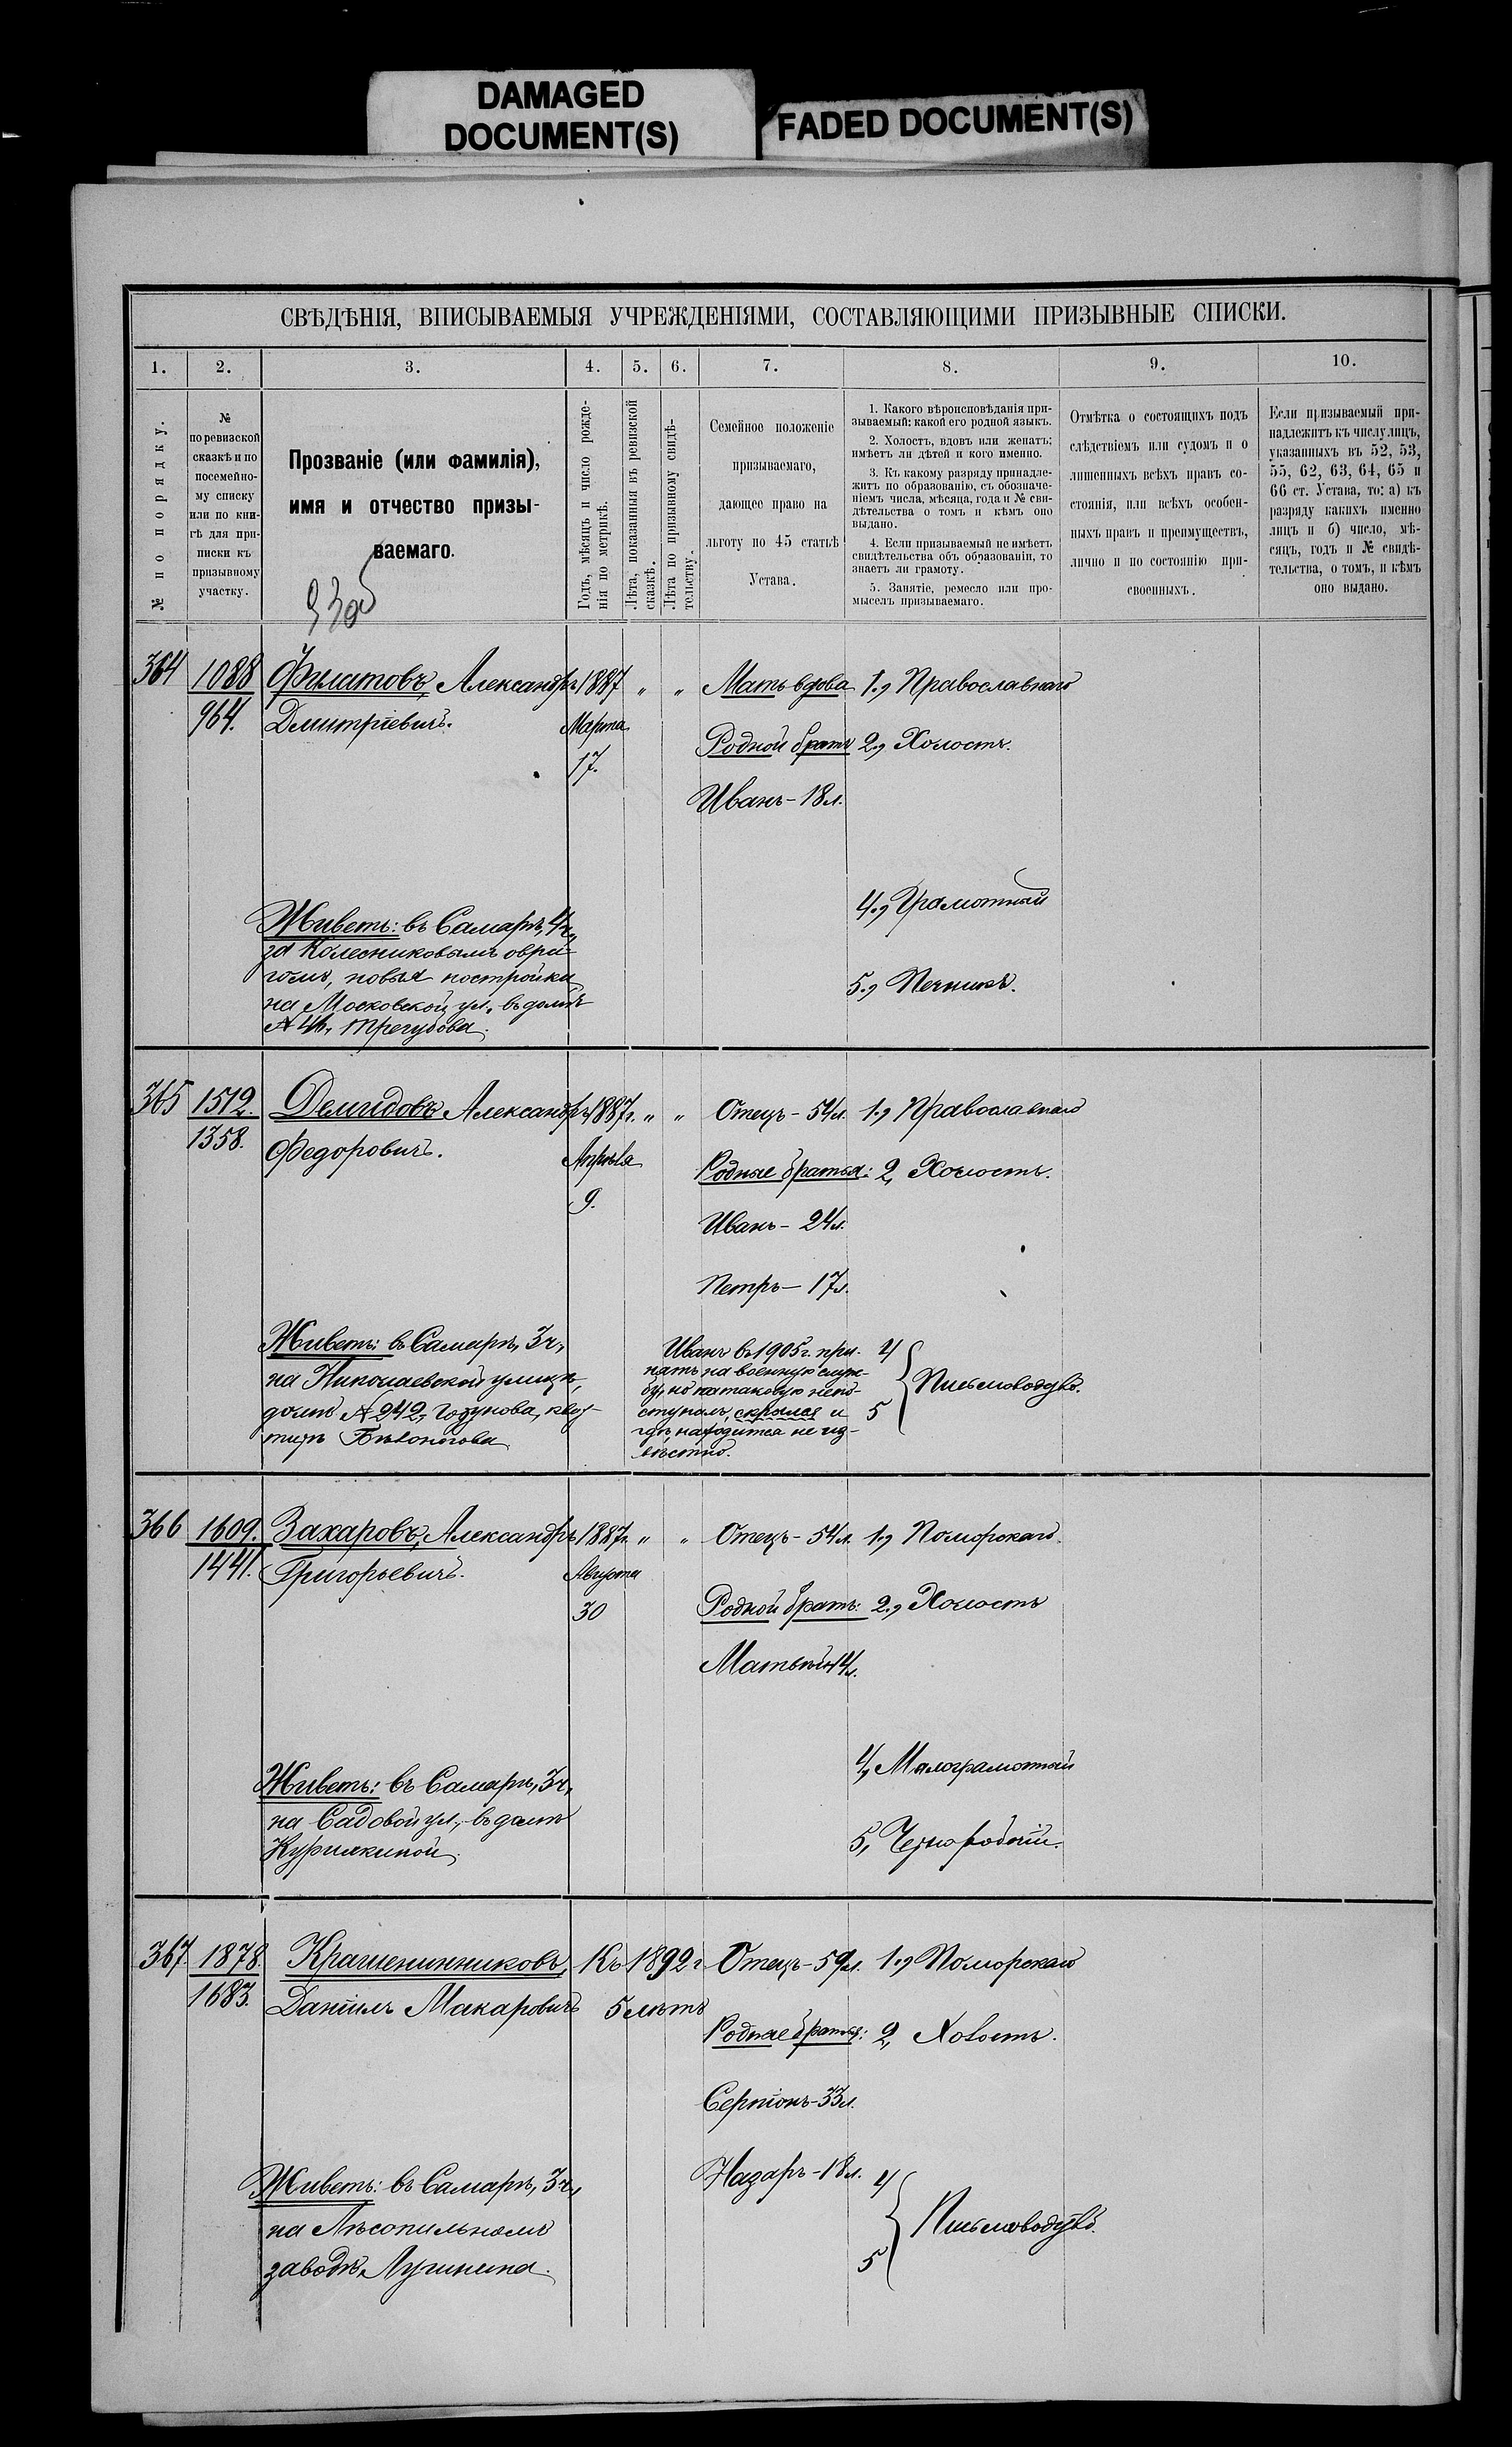 DAMAGED
DOCUMENT(S)
FADED DOCUMENT(S)
СВѢДѢНІЯ, ВПИСЫВАЕМЫЯ УЧРЕЖДЕНІЯМИ, СОСТАВЛЯЮЩИМИ ПРИЗЫВНЫЕ СПИСКИ.
1. 2. 3. 4. 5. 6. 7. 8. 9. 10.
№ по порядку.
№
по ревизской
сказкѣ и по
посемейно-
му списку
или по кни-
гѣ для при-
писки къ
призывному
участку.
Прозваніе (или фамилія),
имя и отчество призы-
ваемаго.
Годъ, мѣсяцъ и число рожде-
нія по метрикѣ.
Лѣта, показанныя въ ревизской
сказкѣ.
Лѣта по призывному свидѣ-
тельству.
Семейное положеніе
призываемаго,
дающее право на
льготу по 45 статьѣ
Устава.
1. Какого вѣроисповѣданія при-
зываемый; какой его родной языкъ.
2. Холостъ, вдовъ или женатъ;
имѣетъ ли дѣтей и кого именно.
3. Къ какому разряду принадле-
житъ по образованію, съ обозначе-
ніемъ числа, мѣсяца, года и № сви-
дѣтельства о томъ и кѣмъ оно
выдано.
4. Если призываемый не имѣетъ
свидѣтельства объ образованіи, то
знаетъ ли грамоту.
5. Занятіе, ремесло или про-
мыселъ призываемаго.
Отмѣтка о состоящихъ подъ
слѣдствіемъ или судомъ и о
лишенныхъ всѣхъ правъ со-
стоянія, или всѣхъ особен-
ныхъ правъ и преимуществъ,
лично и по состоянію при-
своенныхъ.
Если призываемый при-
надлежитъ къ числу лицъ,
указанныхъ въ 52, 53,
55, 62, 63, 64, 65 и
66 ст. Устава, то: а) къ
разряду какихъ именно
лицъ и б) число, мѣ-
сяцъ, годъ и № свидѣ-
тельства, о томъ, и кѣмъ
оно выдано.
364 1088 Филатовъ, Александръ 1887 " " Мать вдова 1., Православнаго
964. Дмитріевичъ. Марта Родной братъ 2., Холостъ.
17. Иванъ - 18 л.
4., Грамотный
Живетъ: въ Самарѣ, 4 ч.,
за Колесниковымъ овра-
гомъ, новыя постройки, 5., Печникъ.
на Московской ул., въ домѣ
Трегубова.
365 1512. Демидовъ Александръ 1887 г. " " Отецъ - 54 л. 1., Православнаго
1358. Федоровичъ. Апрѣля Родные братья: 2, Холостъ.
9. Иванъ - 24 л.
Петръ - 17 л.
Живетъ: въ Самарѣ, 3 ч., Иванъ въ 1905 г. при- 4
на Николаевской улицѣ, нятъ на военную служ- Письмоводство.
домъ № 242, Годунова, квар- бу, но на таковую не по-
тира Бѣлоногова ступалъ, скрылся и 5
гдѣ находится не из-
вѣстно.
366 1609. Захаровъ, Александръ 1887 г. " " Отецъ - 54 л. 1., Поморскаго.
1441. Григорьевичъ. Августа Родной братъ: 2., Холостъ
30 Матвѣй 14 л.
4, Малограмотный
Живетъ: въ Самарѣ, 3 ч.,
на Садовой ул., въ домѣ 5, Чернорабочій.
Курилкиной.
367. 1878. Крашенинниковъ, Къ 1892 г Отецъ - 59 л. 1., Поморскаго
1683. Даніилъ Макаровичъ 5 лѣтъ Родные братья: 2, Холостъ.
Серпіонъ - 33 л.
Назаръ - 18 л. 4
Живетъ: въ Самарѣ, 3 ч.,
на Лѣсопильномъ Письмоводство.
заводѣ Лугинина. 5